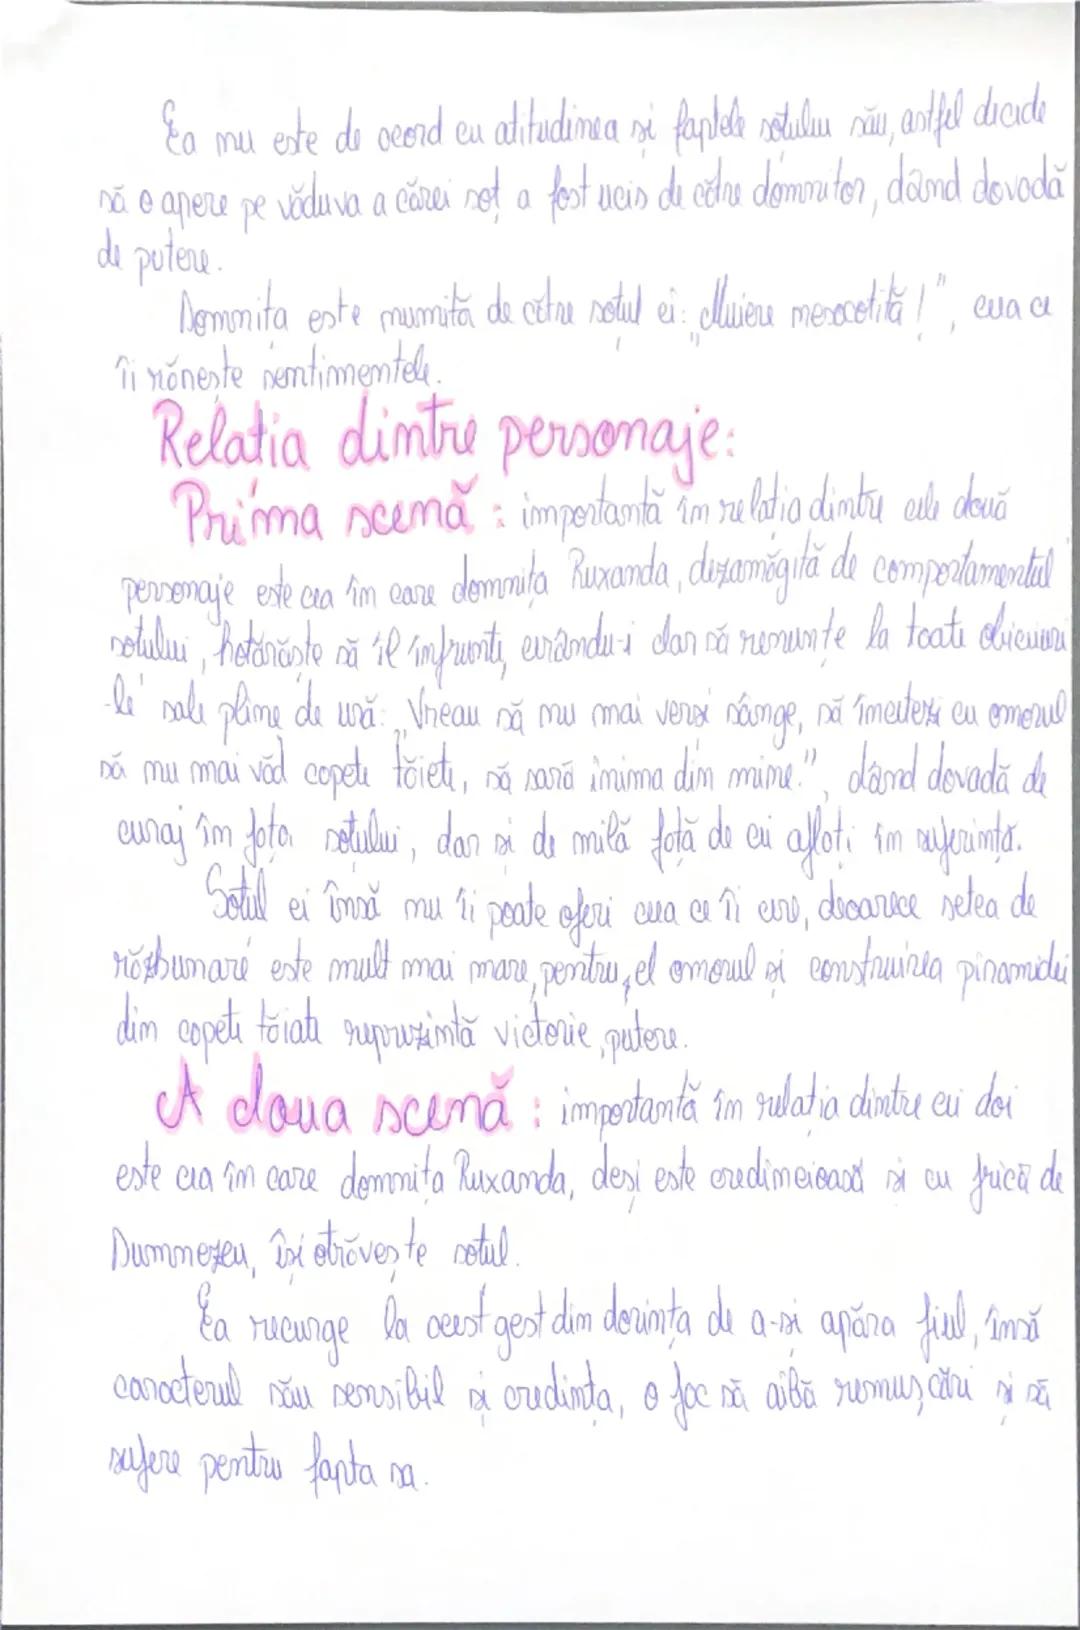 Ea nu este de acord cu atitudinea și faptele soțului său, astfel decide
să o apere pe văduva a cărei soț a fost ucis de către domnitor, dând dovadă
de putere.
Domnița este numită de către soțul ei: „Muiere nesocotită!", ceea ce
îi rănește sentimentele.
Relația dintre personaje:
Prima scenă: importantă în relația dintre cele două
personaje este cea în care domnița Ruxanda, dezamăgită de comportamentul
soțului, hotărăște să îl înfrunte, cerându-i dar să renunțe la toate obiceiuri
-le sale pline de ură: „Vreau să nu mai verși sânge, să încetezi cu omorul
să nu mai văd capete tăiete, să sară inima din mine.", dând dovadă de
curaj în fața soțului, dar și de milă față de cei aflați în suferință.
Soțul ei însă nu îi poate oferi ceea ce îi cere, deoarece setea de
răzbunare este mult mai mare, pentru el omorul și construirea piramidei
din capete tăiate reprezintă victorie, putere.
A doua scenă: importantă în relația dintre cei doi
este cea în care domnița Ruxanda, deși este credincioasă și cu frică de
Dumnezeu, își otrăvește soțul.
Ea recurge la acest gest din dorința de a-și apăra fiul, însă
caracterul său sensibil și credința, o fac să aibă remușcări și să
sufere pentru fapta sa.